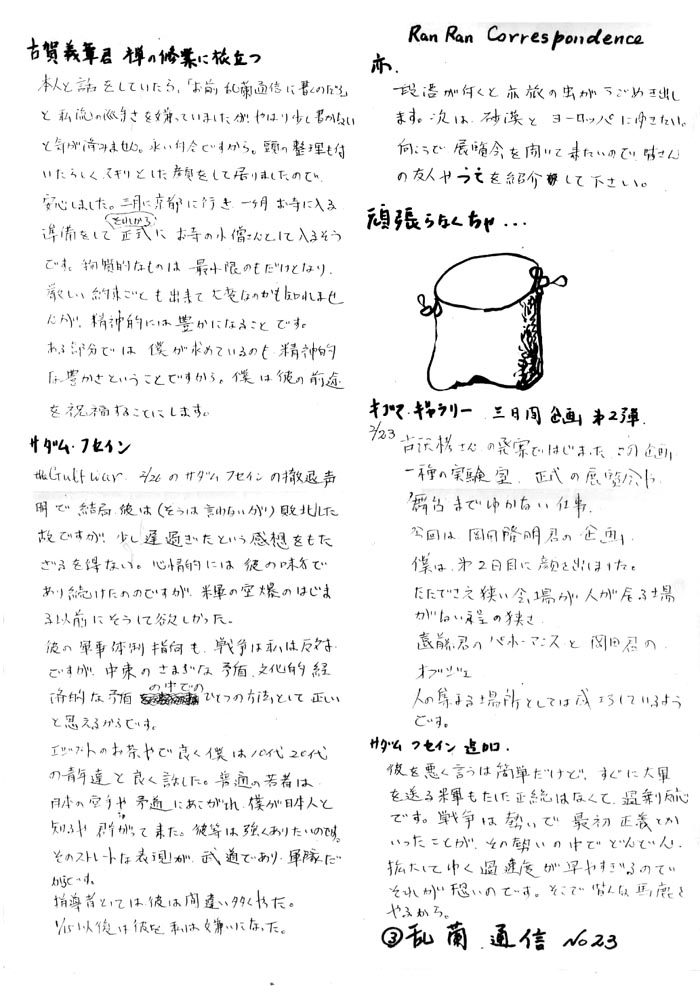 古賀義章君 禅の修業に旅立つ
本人と話をしていたら、「お前、乱蘭通信に書くのだろ」
と私流の
を嫌っていましたが、やはり少し書かない
と気が済みません。永い付合ですから。頭の整理も付
いたらしくスキリとした顔をして居りましたので、
安心しました。三月に京都に行き、一ヶ月お寺に入る
準備をして 正式に お寺の小僧さんとして入るそう
です。物質的なものは 最小限のものだけとなり、
厳しい約束ごとも出来て大変なのかも知れませ
んが、精神的には豊かになることです。
ある部分では 僕が求めているのも 精神的
な豊かさということですから。僕は彼の前途
を祝福することにします。
サダム・フセイン
the Gulf war. 2/26 のサダムフセインの撤退声
明で 結局 彼は (そうは言わないが) 敗北した
訳ですが、少し遅過ぎたという感想をもた
ざるを得ない。心情的には 彼の味方で
あり続けたのですが、米軍の空爆のはじま
る以前にそうして欲しかった。
彼の軍事体制指向も、戦争は私は反対
ですが、中東のさまざまな矛盾、文化的 経
済的な矛盾の中での ひとつの方法として正しい
と思えるからです。
エジプトのお茶やで良く僕は 10代 20代
の青年達と良く話した。普通の若者は
日本の空手や柔道にあこがれ、僕が日本人と
知るや 群がって来た。彼等は強くありたいのです。
そのストレートな表現が、武道であり、軍隊だ
からです。
指導者としては 彼は間違い多くやった。
1/15以後は彼を 私は嫌いになった。
Ran Ran Correspondence
亦、
一段落が付くと 亦 旅の虫がうごめき出し
ます。次は、砂漠と ヨーロッパにゆきたい。
向こうで 展覧会を開いて来たいので、皆さん
の友人やつてを紹介して下さい。
頑張らなくちゃ・・・
キゴマ・ギャラリー 三日間企画 第2弾.
2/23
さんの発案ではじまったこの企画
一種の実験室、正式の展覧会や
舞台までゆかない仕事、
今回は、岡田隆明君の企画、
僕は、第2日目に顔を出しました。
ただでさえ狭い会場が、人が居る場
がない程の狭さ
遠藤君のパホーマンスと 岡田君の
オブジェ
人の集まる場所としては成功しているよう
です。
サダム フセイン 追加.
彼を悪く言うは簡単だけど、すぐに大軍
を送る米軍もたした正統はなくて、過剰反応
です。戦争は勢いで 最初 正義とか
いったことが、その勢いの中で どんどん
拡大してゆく過速度が早やすぎるので
それが恐いのです。そこで皆んな馬鹿を
やるから。
③乱蘭通信 No23